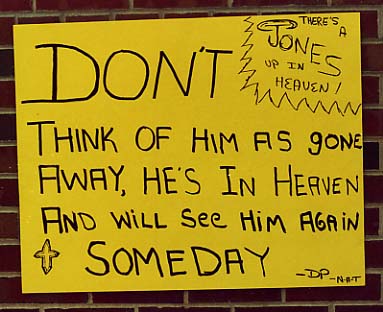 DON'T
THERE'S
A
JONES
UP IN
HEAVEN!
THINK OF HIM AS gONE
AWAY, HE'S IN HEAVEN
AND WILL SEE HIM AGAIN
SOMEDAY
-DP-N-B-T